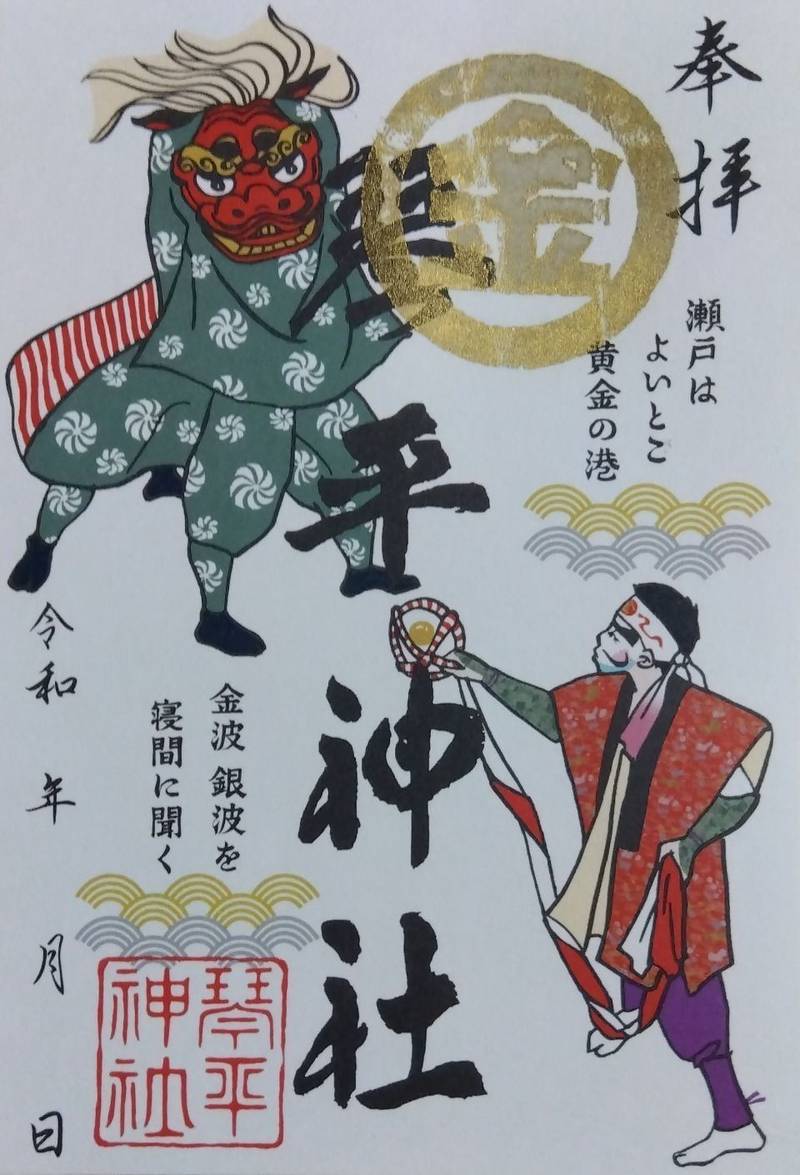 奉拝
瀬戸は
よいとこ
黄金の港
金
琴平神社
金波 銀波を
寝間に聞く
琴平
神社
令和 年 月 日